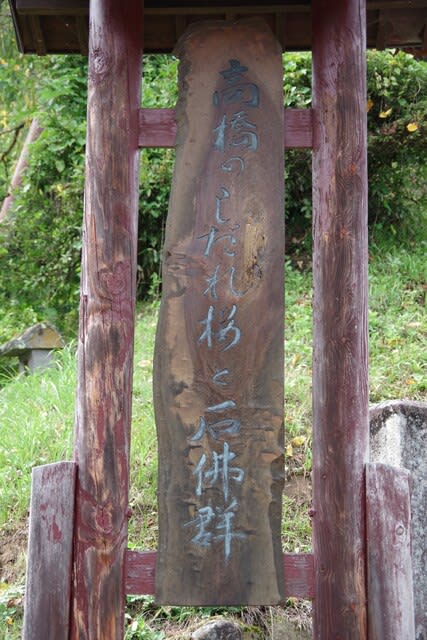 高橋のしだれ桜と石佛群